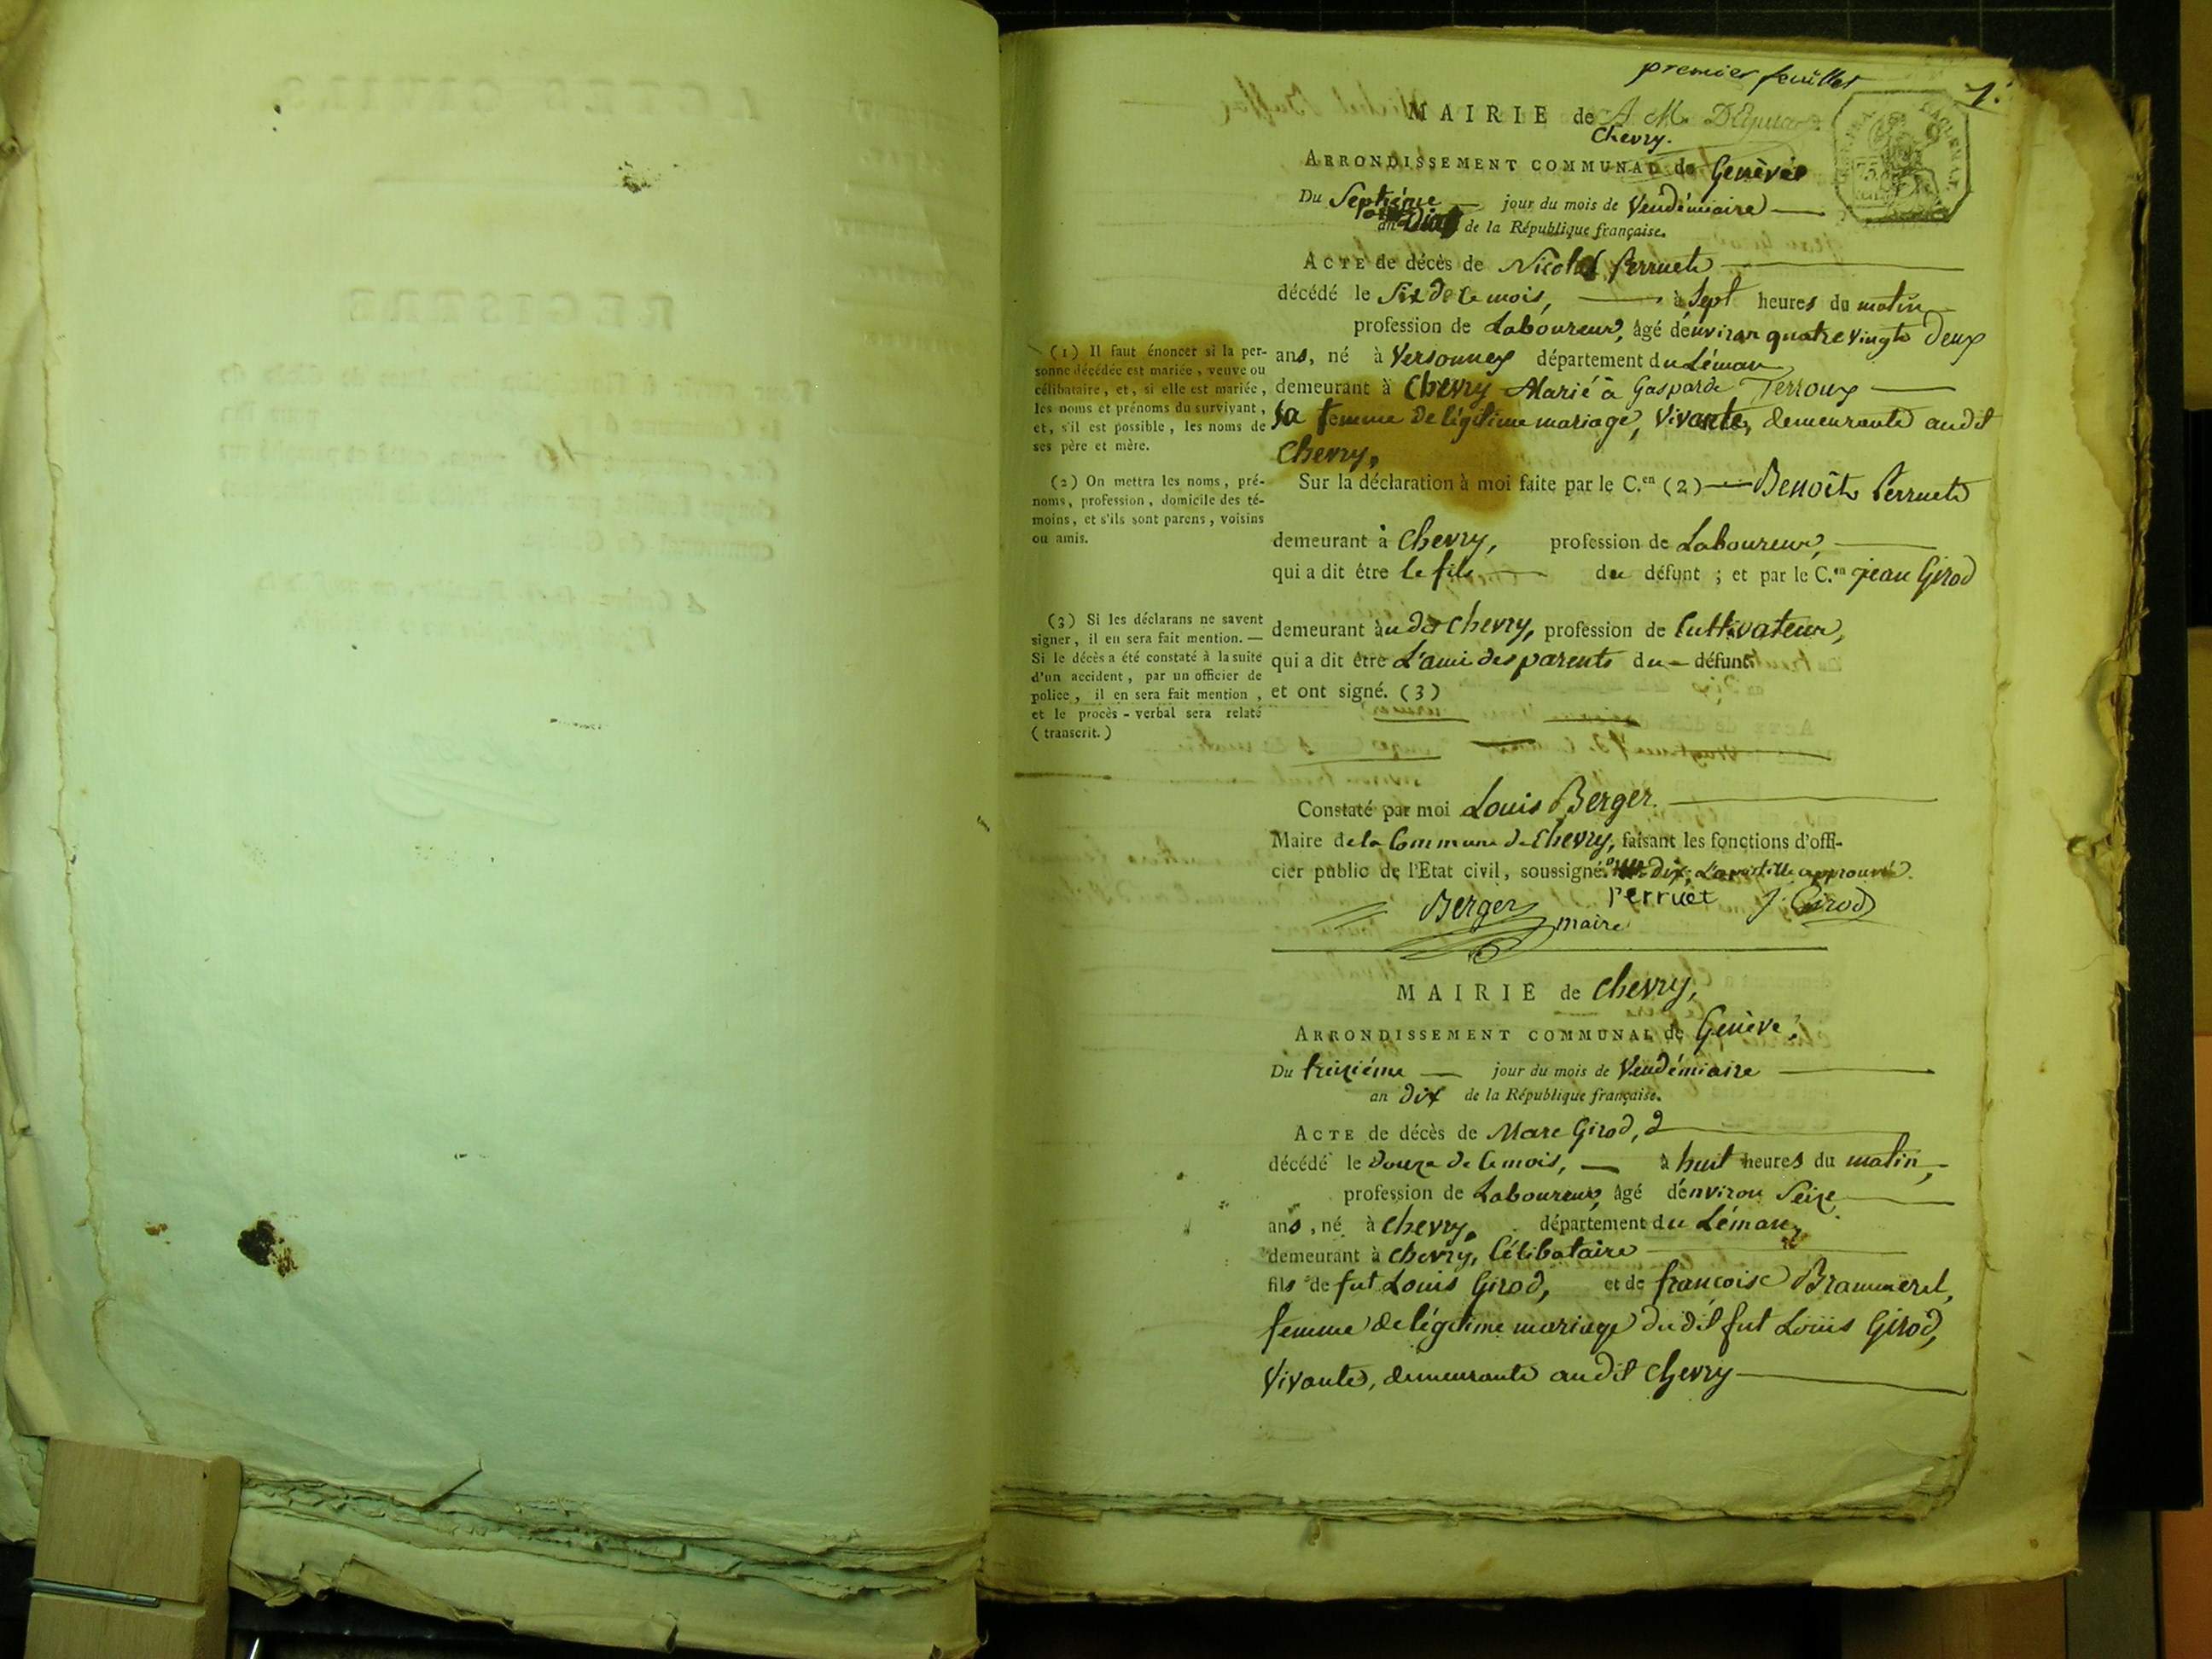 premier feuillet
1.
MAIRIE de
Chevry.
ARRONDISSEMENT COMMUNAL de Genève
Du Septiéme jour du mois de Vendémiaire
an de la République française.
ACTE de décès de Nicolas Perruet
décédé le Six de ce mois, à Sept heures du matin
profession de Laboureur, âgé d'environ quatre vingts deux
ans, né à Versonnex département du Léman
demeurant à Chevry Marié à Gasparde Terroux
Sa femme de légitime mariage, Vivante, demeurante audit
Chevry,
Sur la déclaration à moi faite par le C.en (2) Benoît Perruet
demeurant à Chevry, profession de Laboureur,
qui a dit être le fils du défunt ; et par le C.en jean Girod
demeurant au dt Chevry, profession de Cultivateur,
qui a dit être L'ami des parents du défunt
et ont signé. (3)
Constaté par moi Louis Berger.
Maire de la Commune de Chevry, faisant les fonctions d'offi-
cier public de l'Etat civil, soussigné. dix. L'apostille approuvé.
Berger maire Perruet J. Girod
(1) Il faut énoncer si la per-
sonne décédée est mariée, veuve ou
célibataire, et, si elle est mariée,
les noms et prénoms du survivant,
et, s'il est possible, les noms de
ses père et mère.
(2) On mettra les noms, pré-
noms, profession, domicile des té-
moins, et s'ils sont parens, voisins
ou amis.
(3) Si les déclarans ne savent
signer, il en sera fait mention. —
Si le décès a été constaté à la suite
d'un accident, par un officier de
police, il en sera fait mention,
et le procès-verbal sera relaté
( transcrit. )
MAIRIE de Chevry,
ARRONDISSEMENT COMMUNAL de Genève
Du treiziéme jour du mois de Vendémiaire
an dix de la République française.
ACTE de décès de Marc Girod,
décédé le douze de ce mois, à huit heures du matin,
profession de Laboureur, âgé d'environ Seize
ans, né à Chevry, département du Léman,
demeurant à Chevry, Célibataire
fils de fut Louis Girod, et de françoise Brammerel,
femme de légitime mariage du dit fut Louis Girod,
Vivante, demeurante audit Chevry